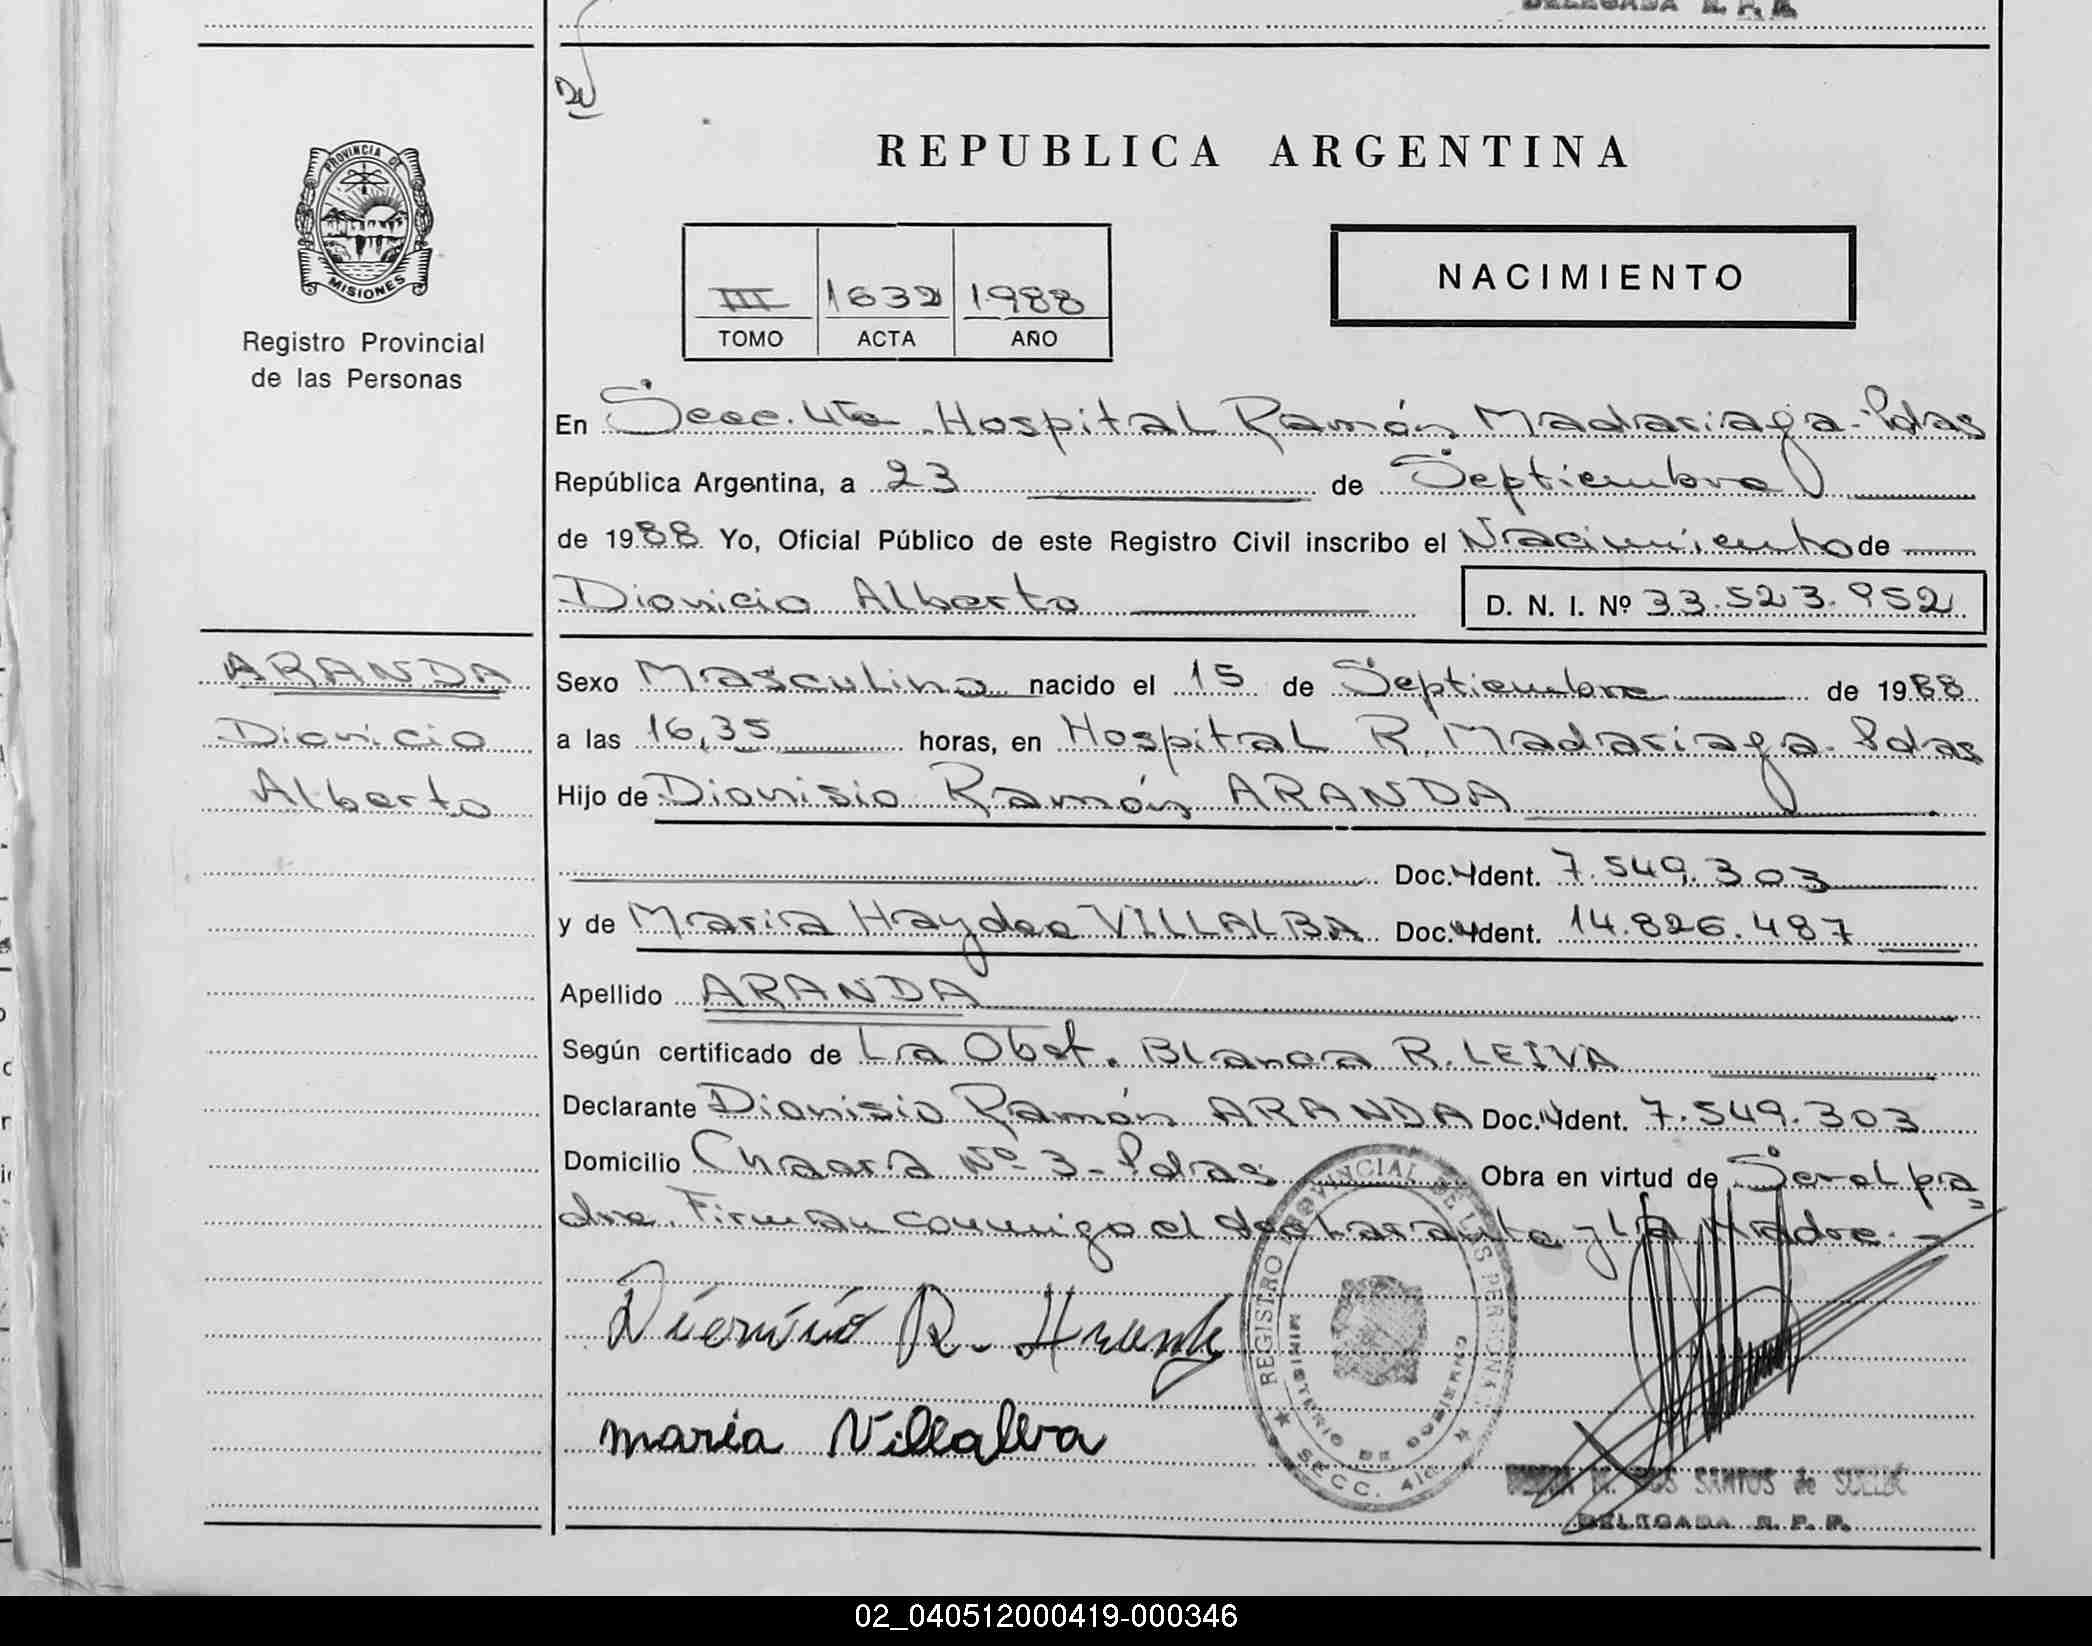 DELEGADA R. P. P.
PROVINCIA DE
MISIONES
Registro Provincial
de las Personas
REPUBLICA ARGENTINA
NACIMIENTO
III 1632 1988
TOMO ACTA AÑO
En Secc. 4ta. Hospital Ramón Madariaga - Pdas
República Argentina, a 23 de Septiembre
de 1988 Yo, Oficial Público de este Registro Civil inscribo el Nacimiento de
Dionicio Alberto D. N. I. Nº 33.523.952
ARANDA
Dionicio
Alberto
Sexo Masculino nacido el 15 de Septiembre de 1988
a las 16,35 horas, en Hospital R. Madariaga - Pdas
Hijo de Dionisio Ramón ARANDA
Doc. Ident. 7.549.303
y de Maria Haydee VILLALBA Doc. Ident. 14.826.487
Apellido ARANDA
Según certificado de La Obst. Blanca R. LEIVA
Declarante Dionisio Ramón ARANDA Doc. Ident. 7.549.303
Domicilio Chacra Nº 3 - Pdas Obra en virtud de Ser el pa
dre. Firman conmigo el declarante y la Madre. -
REGISTRO PROVINCIAL DE LAS PERSONAS
MINISTERIO DE GOBIERNO
SECC. 4ta
Dionisio R. Aranda
maria Villalba
M. DOS SANTOS de
DELEGADA R. P. P.
02_040512000419-000346